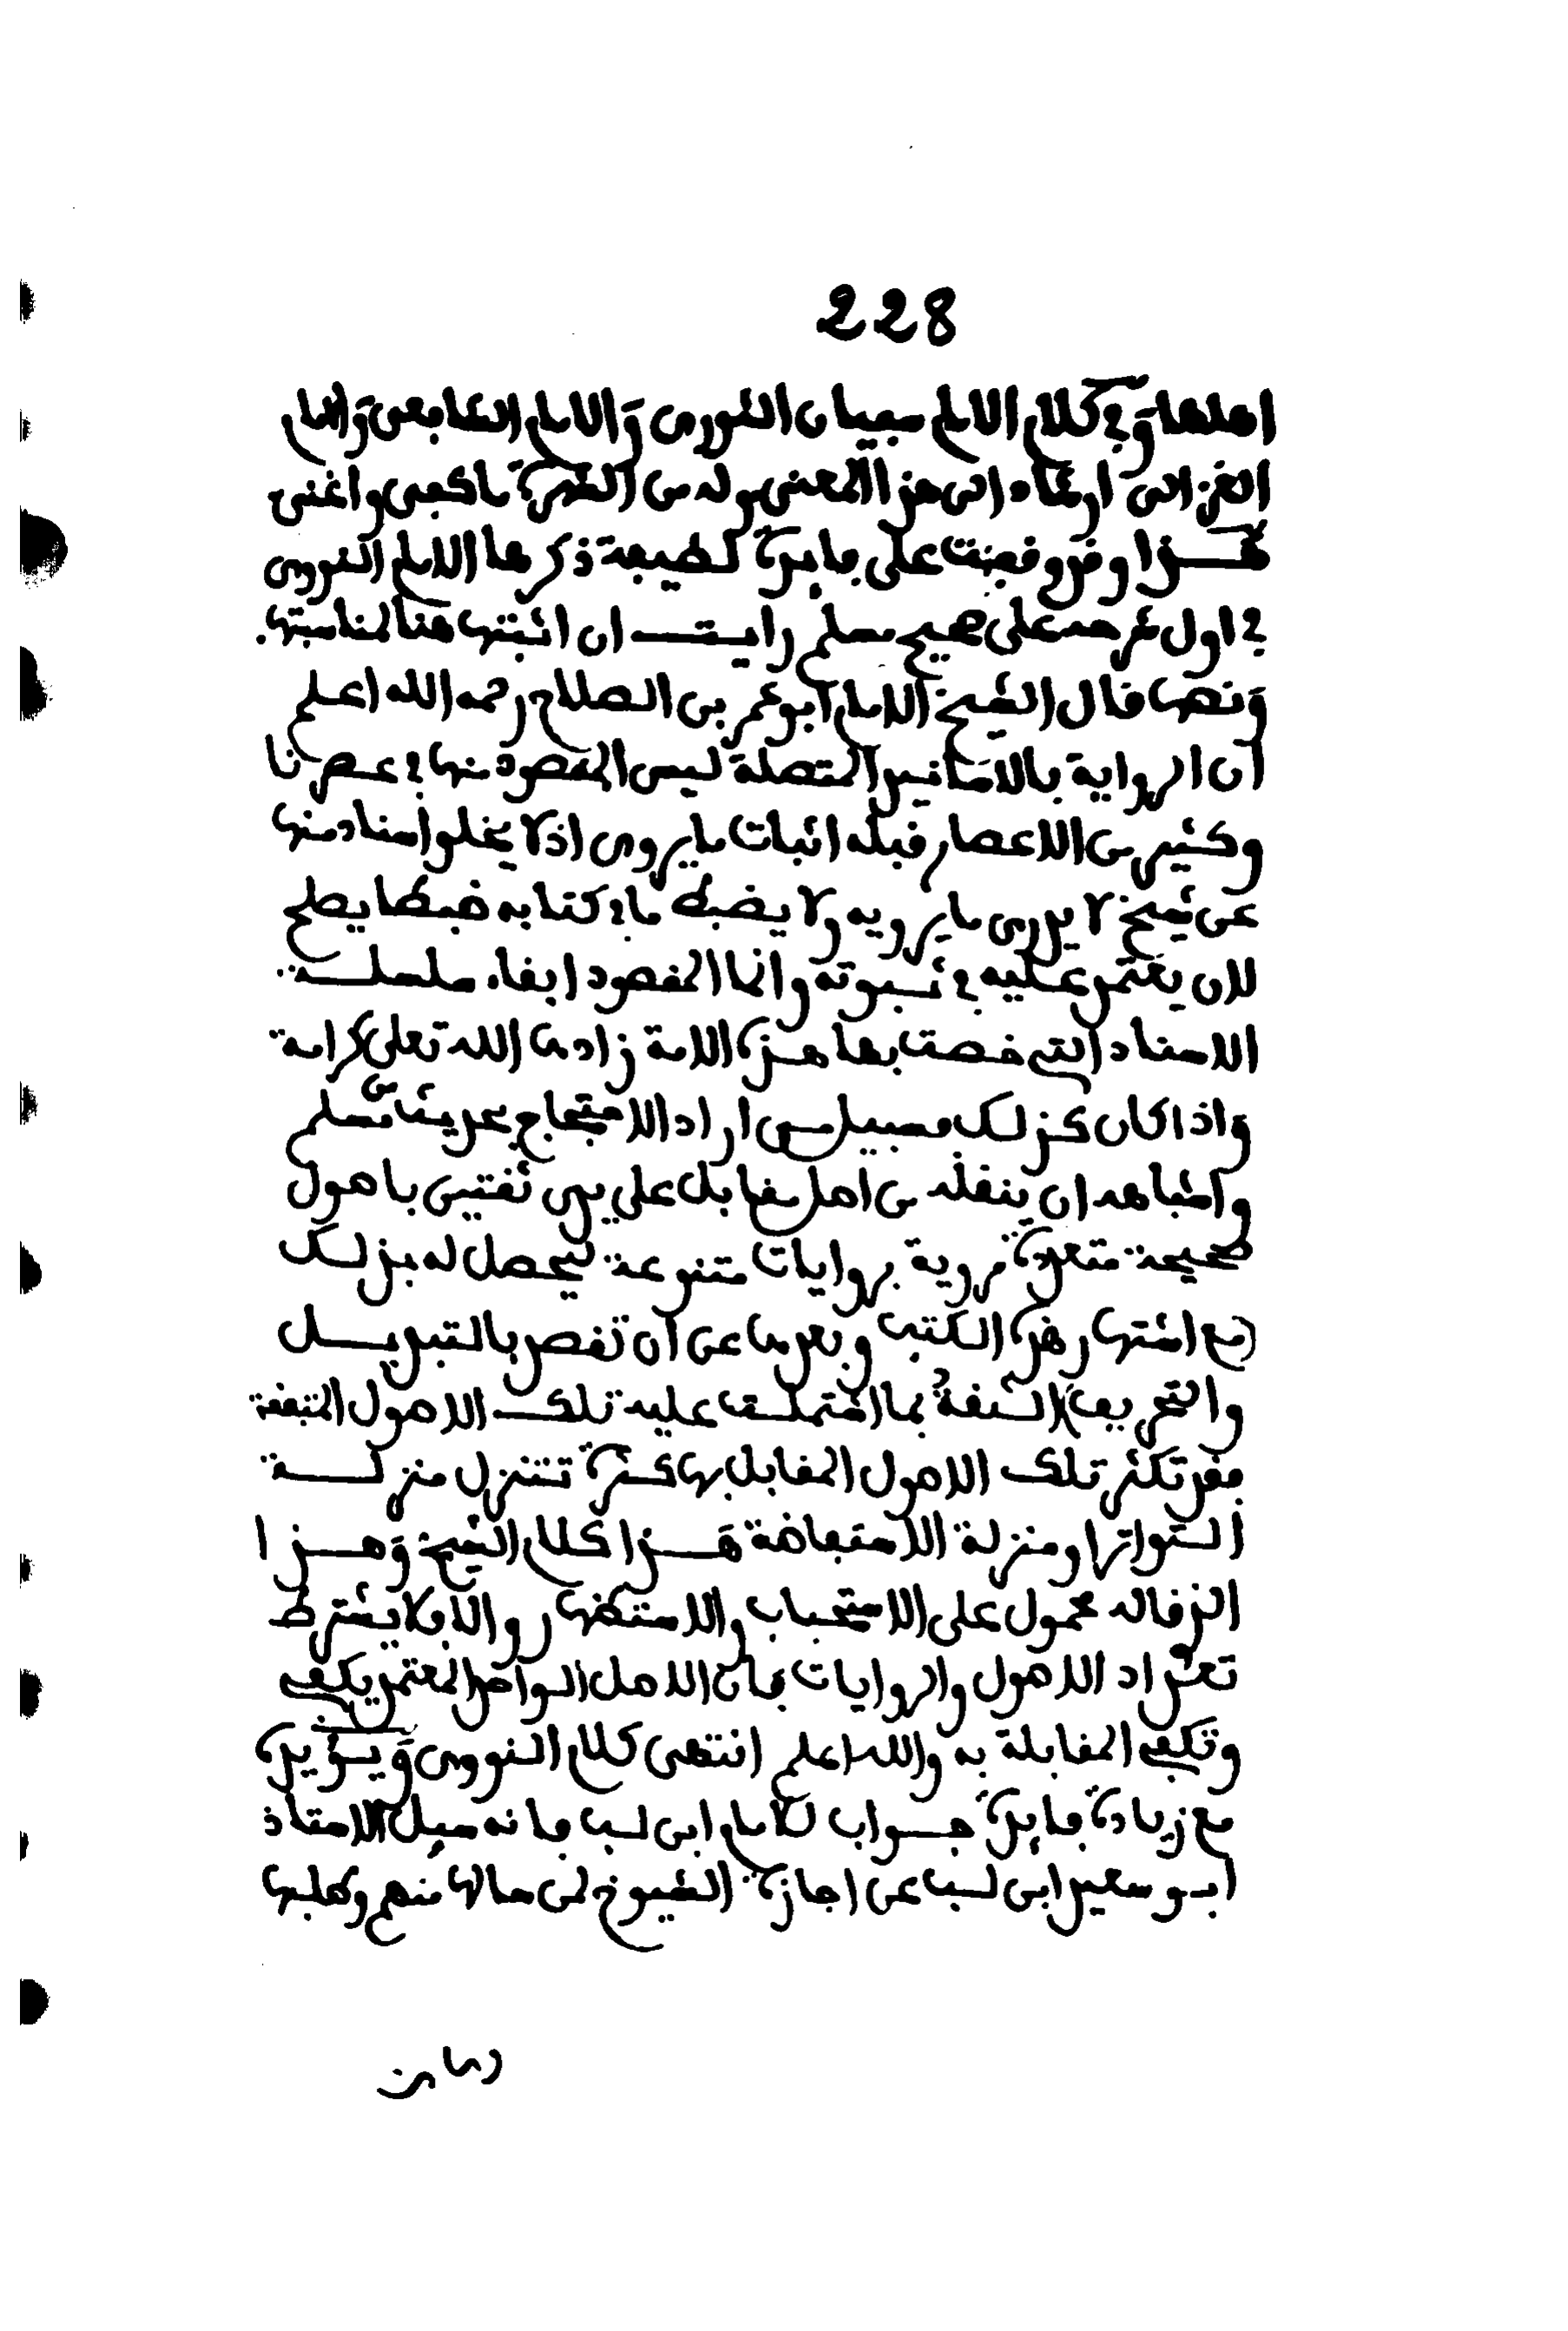 228
اهلها وفي كلام الامام سفيان الثوري والامام الشافعي والامام
الغزالي ارشاد الى هذا المعنى وله من الشهرة ما كفى واغنى
هـــذا وقد وقفت على فايدة لطيفة ذكرها الامام النووي
في اول شرحه على صحيح مسلم رايـــت ان اثبتها هنا لمناسبتها
ونصها قال الشيخ الامام ابو عمر بن الصلاح رحمه الله اعلم
ان الرواية بالاسانيد المتصلة ليس المقصود منها في عصرنا
وكثير من الاعصار قبله اثبات ما يروى اذ لا يخلو اسناد منها
عن شيخ لا يدري ما يرويه ولا يضبط ما في كتابه ضبطا يصلح
لان يعتمد عليه في ثبوته وانما المقصود ابقاء سلسلة
الاسناد التي خصت بها هذه الامة زادها الله تعلى كرامة
واذا كان كذلك فسبيل من اراد الاحتجاج بحديث من مسلم
واشباهه ان ينقله من اصل مقابل على يدي ثقتين باصول
صحيحة متعددة مروية بروايات متنوعة ليحصل له بذلك
(مع اشتهار هذه الكتب وبعدها عن ان تقصد بالتبديـــل
والتحريف) الثقة بما اشتملت عليه تلك الاصول المتفقة
فقد تكثر تلك الاصول المقابل بها كثرة تتنزل منزلـــة
التواتر او منزلة الاستفاضة هـــذا كلام الشيخ وهـــذا
الذي قاله محمول على الاستحباب والاستظهار والا فلا يشترط
تعداد الاصول والروايات فان الاصل الواحد المعتمد يكفي
وتكفي المقابلة به والله اعلم انتهى كلام النووي ويـــؤيده
مع زيادة فايدة جـــواب للامام ابن لب فانه سيل الاستاذ
ابـــو سعيد ابن لب عن اجازة الشيوخ لمن سالها منهم وطلبها